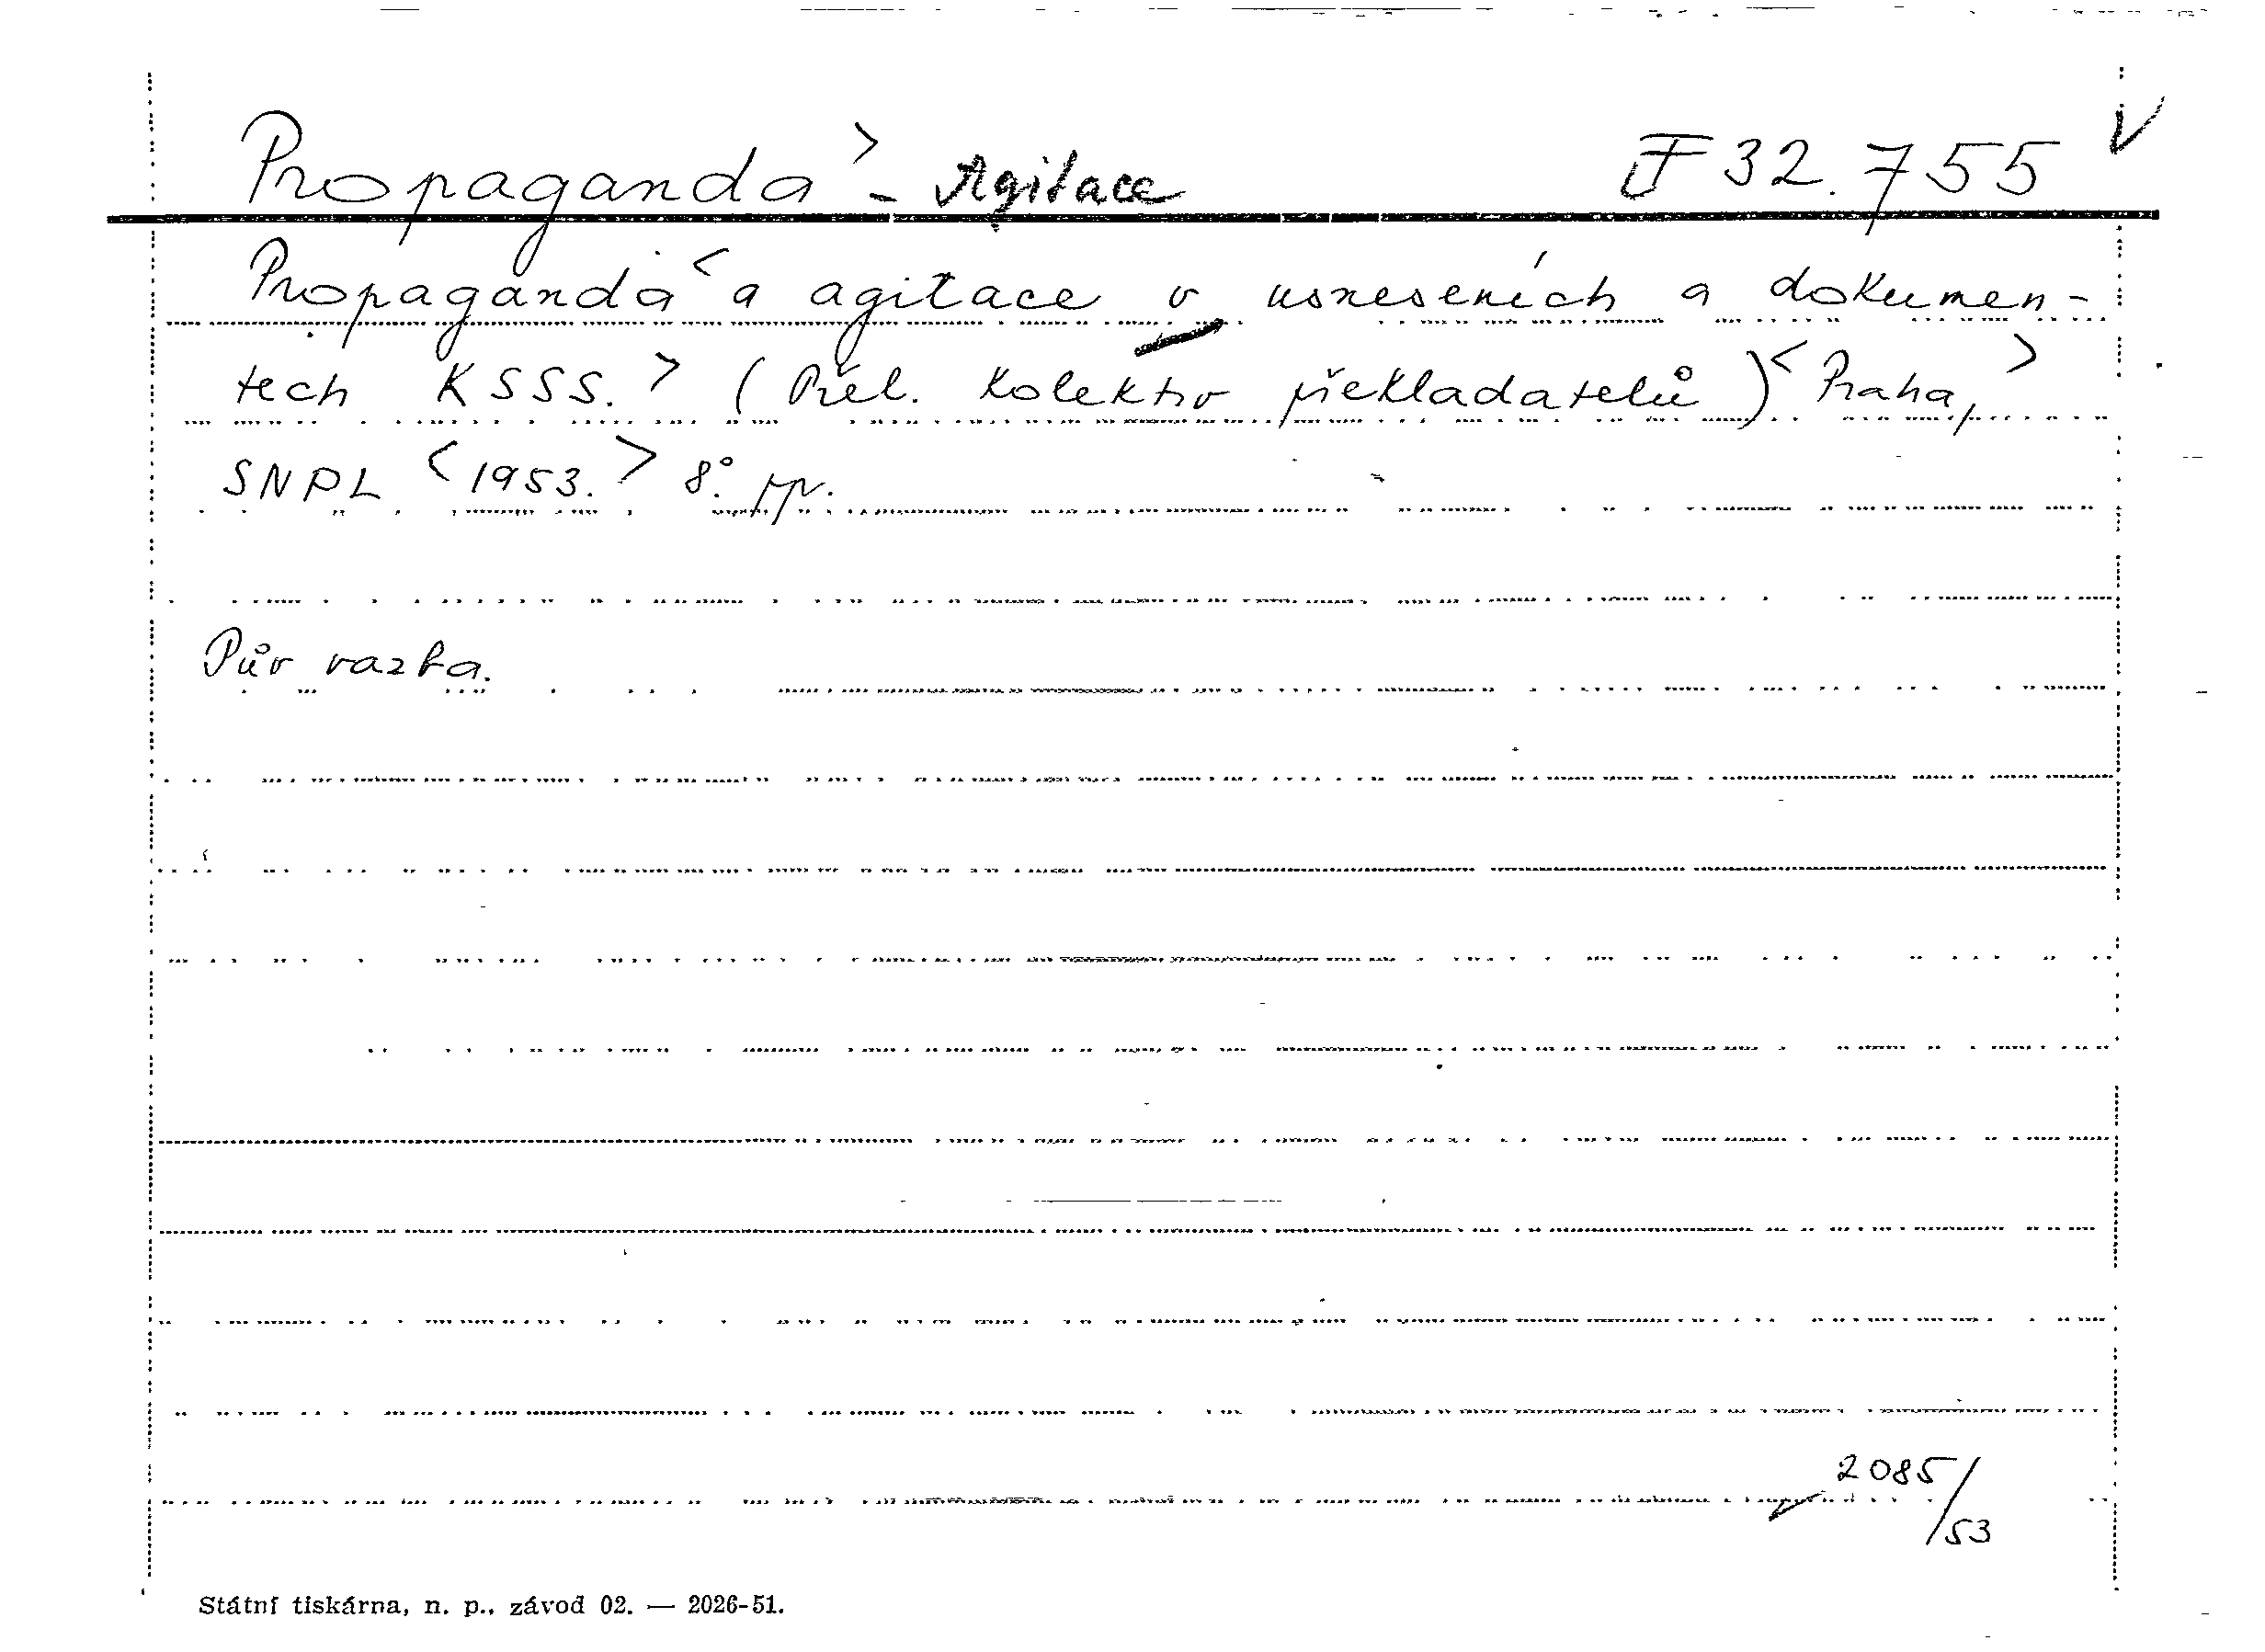 Propaganda > - Agitace F 32.755 V
Propaganda < a agitace v usneseních a dokumen-
tech KSSS. > (Přel. kolektiv překladatelů) < Praha, >
SNPL < 1953. > 8°.
Pův vazba.
2085/53
Státní tiskárna, n. p., závod 02. — 2026-51.